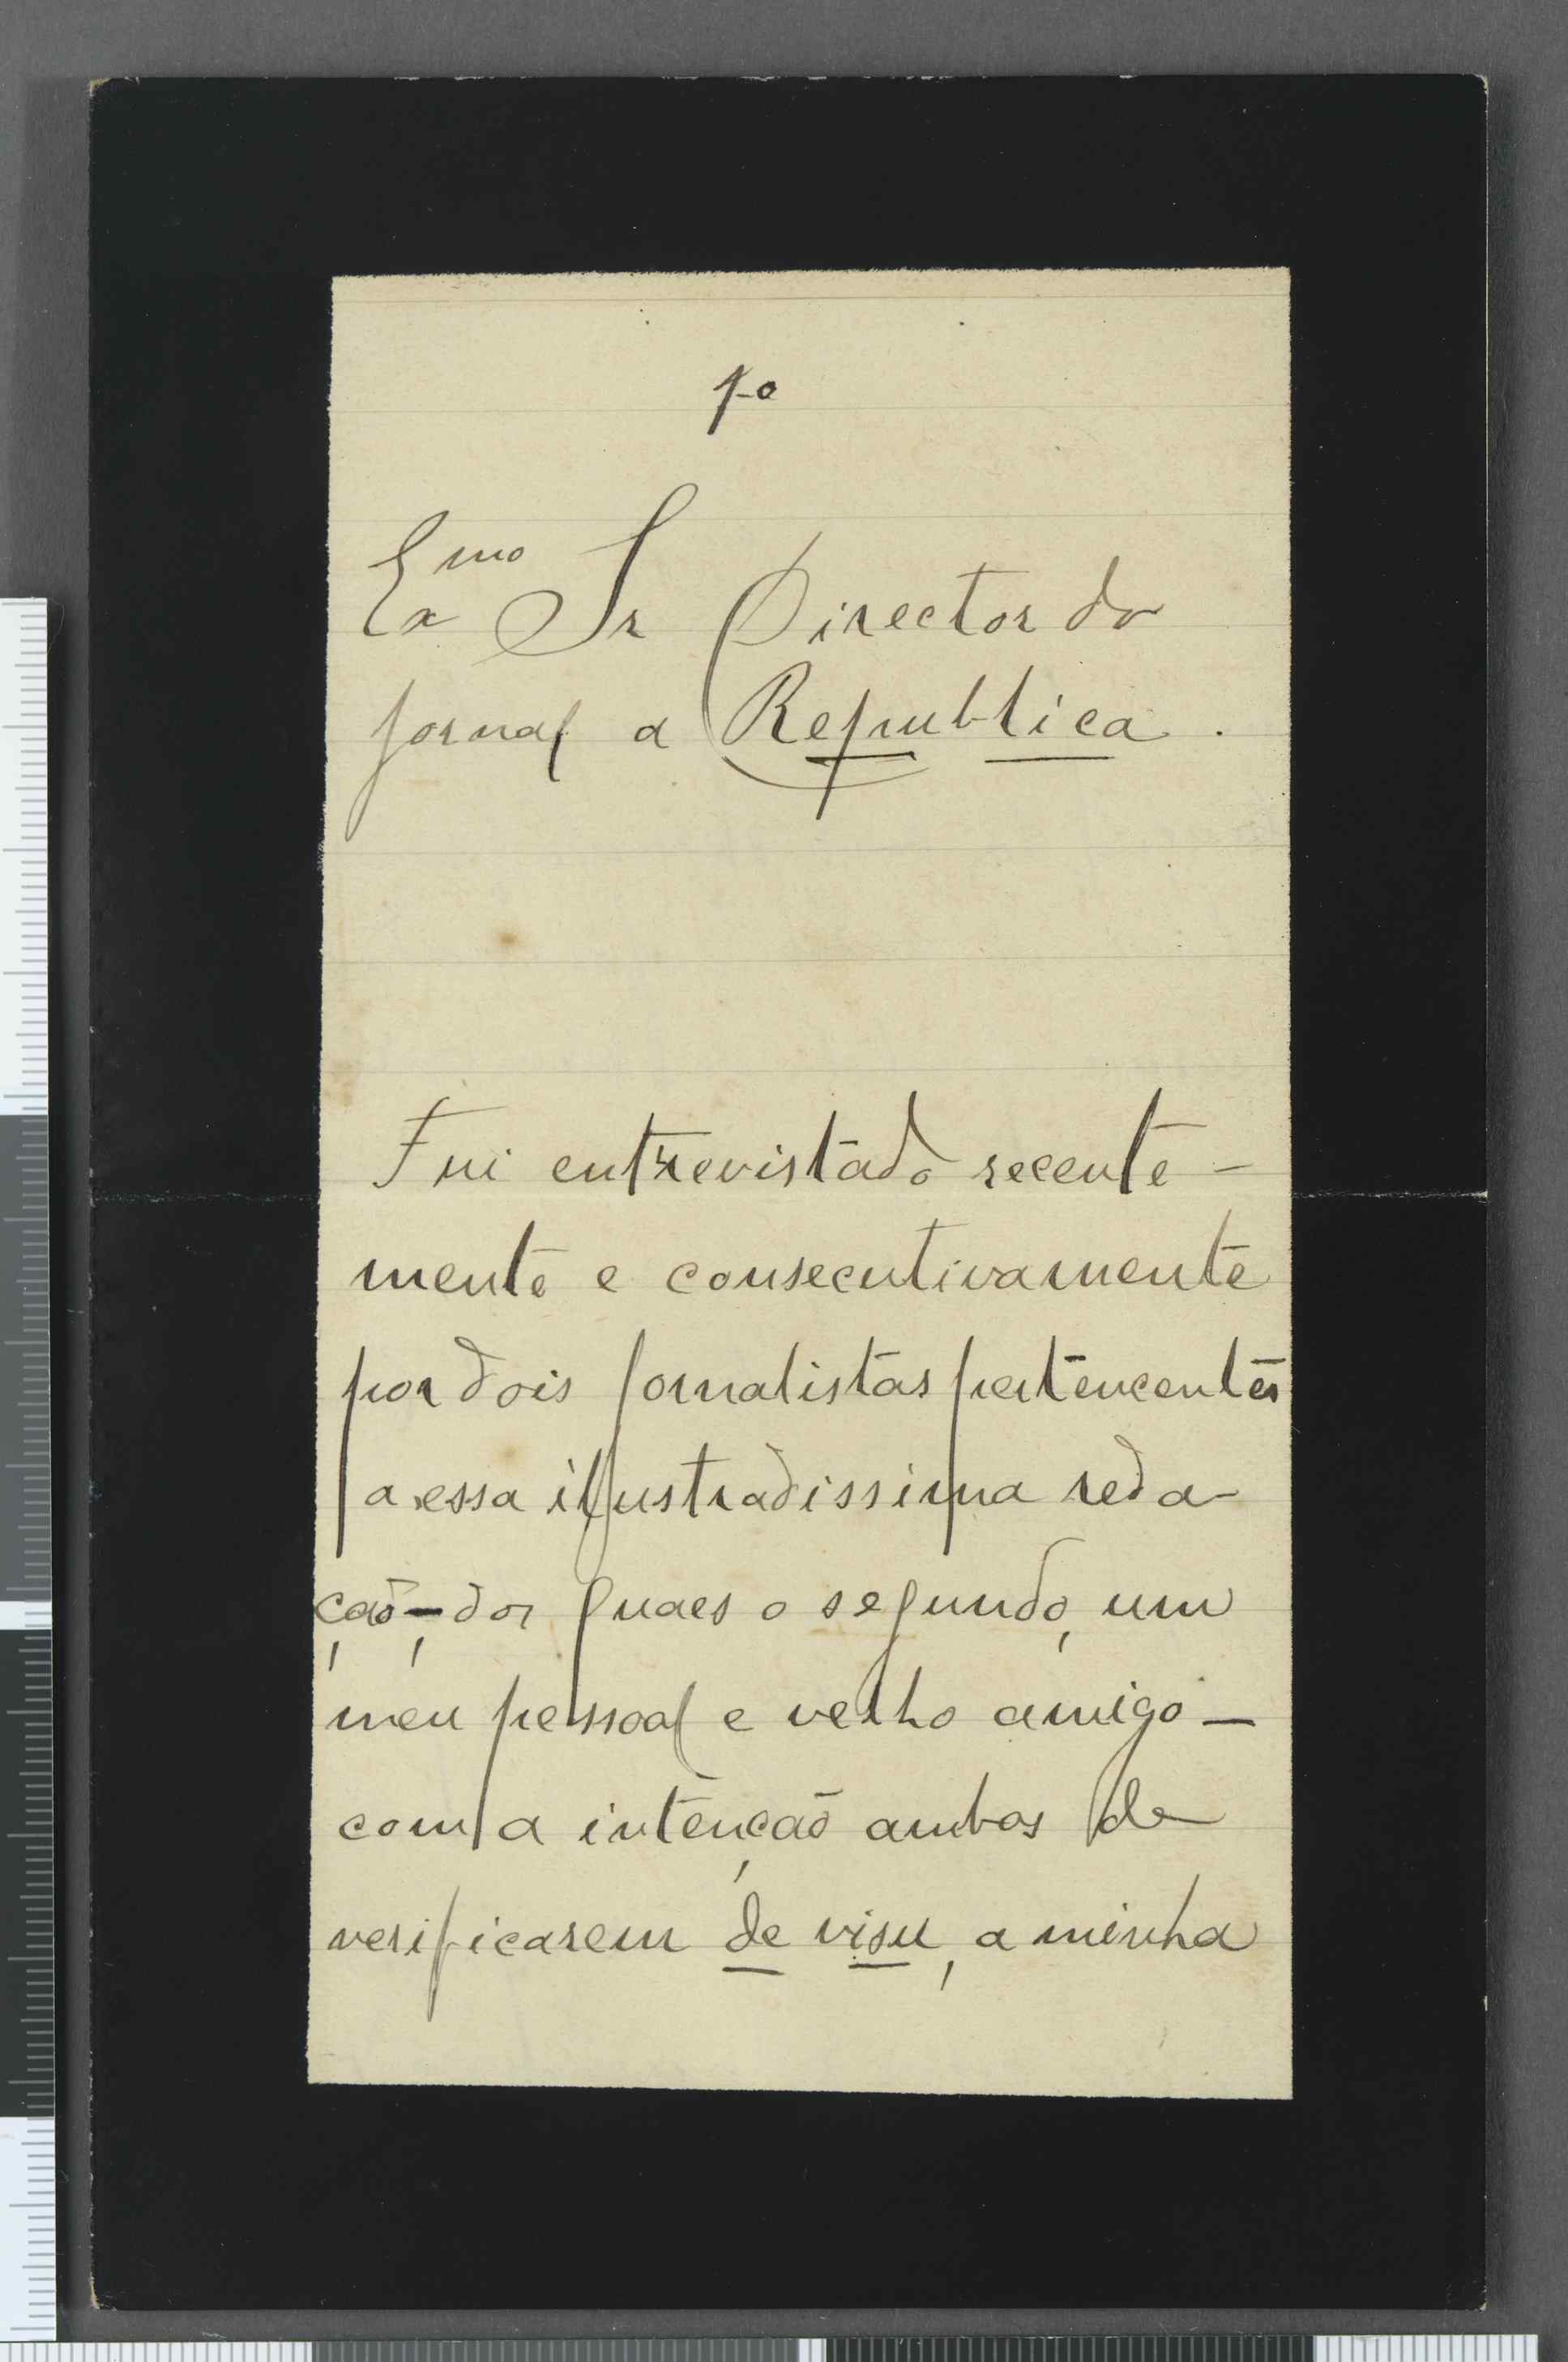 1º
Exmo Sr Director do
jornal a Republica.
Fui entrevistado recente-
mente e consecutivamente
por dois jornalistas pertencentes
a essa illustradissima reda-
ção - dos quaes o segundo, um
meu pessoal e velho amigo -
com a intenção ambos de
verificarem de visu, a minha